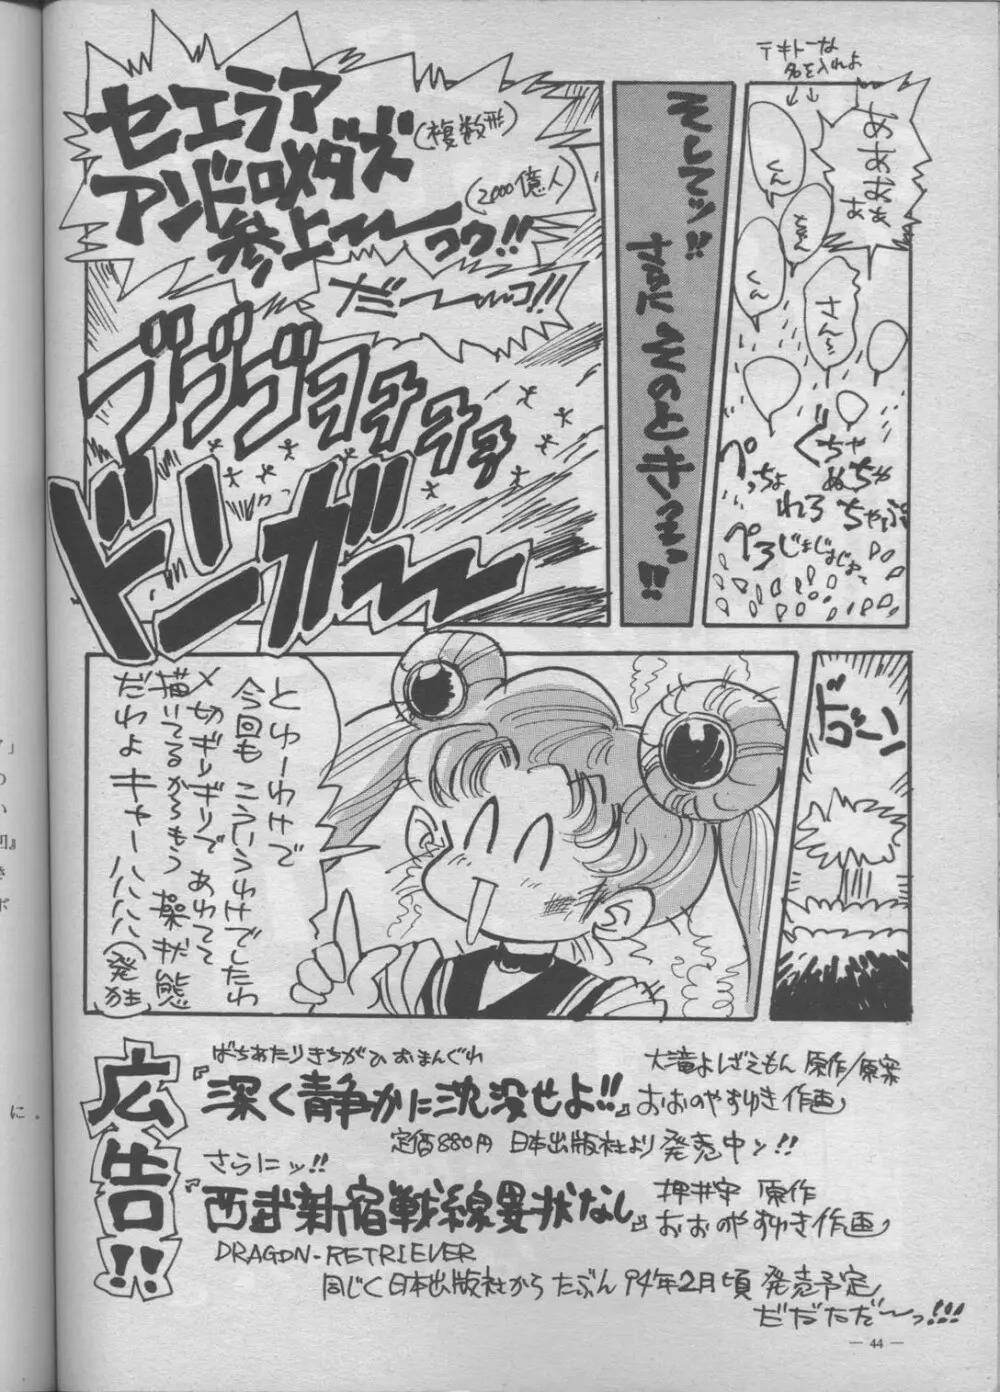 テキトーな
名を入れよ
↓↓
ああああ
くん
ちゃん
くん
さん〜
ぐちゃ
ぬちゃ
ちゃぷ
ぺっちょ
れろ
ぺろ
そしてッ!!
まさにそのときっっ!!
セエラア
アンドロメダズ(複数形)
参上〜〜っっ!!
(2000億人)
だ〜〜っ!!
ドンガ〜〜
ドゴーン
とゆーわけで
今回もこういうわけでしたわ
〆切ギリギリであわてて
描いてるからもう操状態
だわよキャーハハハハ(発狂)
広告!!
ばちあたりきちがひおまんぐわ
『深く静かに沈没せよ!!』
大滝よしざえもん 原作/原案
おおのやすゆき作画
定価880円 日本出版社より発売中ッ!!
さらにッ!!
『西武新宿戦線異状なし』
押井守 原作
おおのやすゆき作画
DRAGON-RETRIEVER
同じく日本出版社からたぶん94年2月頃発売予定
だだただ〜っ!!!
— 44 —